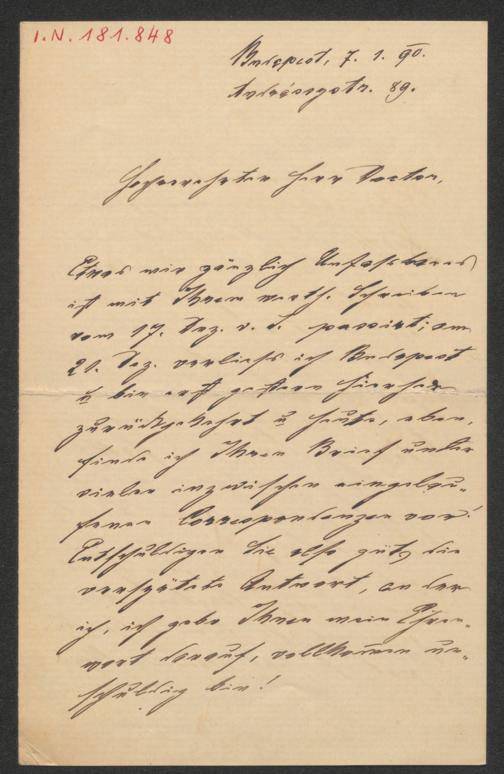 I.N. 181.848
Budapest, 7. 1. 90.
Andrássystr. 89.
Hochverehrter Herr Doctor,
Etwas mir gänzlich Unfassbares
ist mit Ihrem werth. Schreiben
vom 17. Dez. v. J. passirt; am
20. Dez. verliess ich Budapest
u bin erst gestern hierher
zurückgekehrt u heute, eben,
finde ich Ihren Brief unter
vielen inzwischen eingelau-
fenen Correspondenzen vor!
Entschuldigen Sie also gütg die
verspätete Antwort, an der
ich, ich gebe Ihnen mein Ehren-
wort darauf, vollkommen un-
schuldig bin!